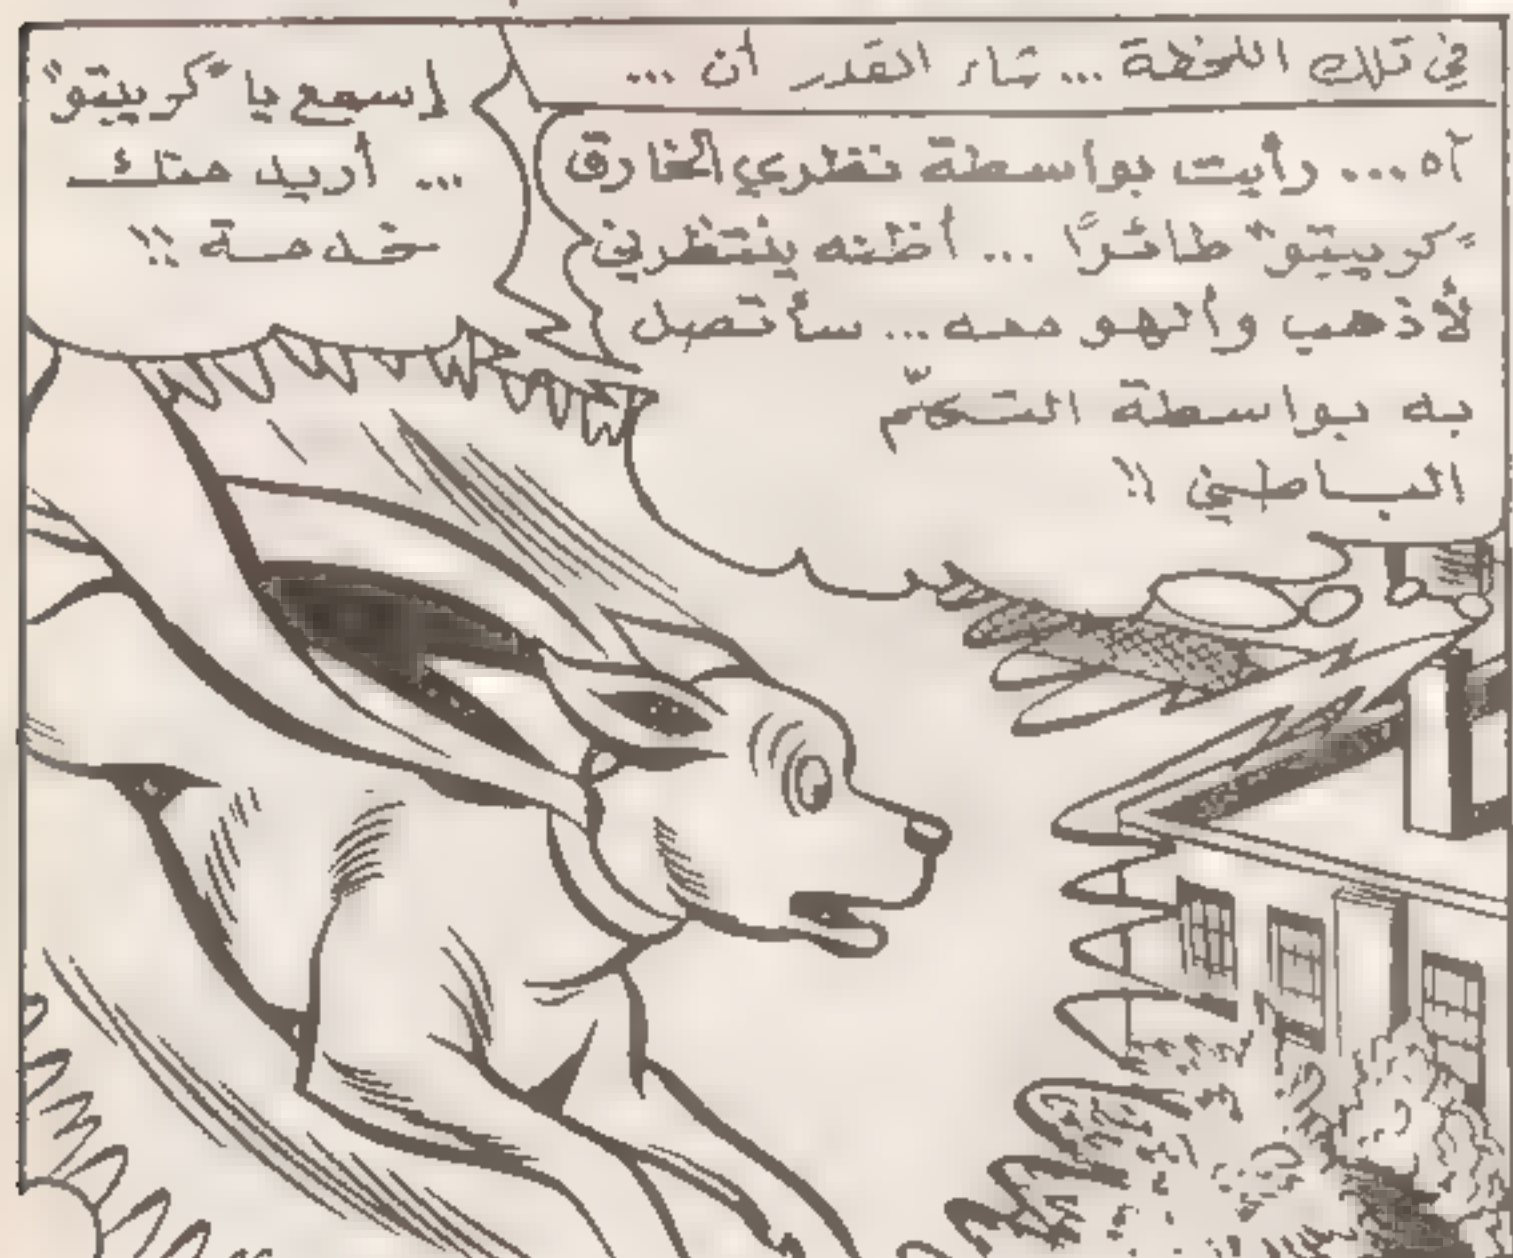 في تلك اللحظة ... شاء القدر أن ...
آه... رأيت بواسطة نظري الخارق
"كريبتو" طائرًا ... أظنه ينتظرني
لأذهب وألهو معه ... سأتصل
به بواسطة التكلّم
الباطني !!
إسمع يا "كريبتو"
... أريد منك
خدمة !!